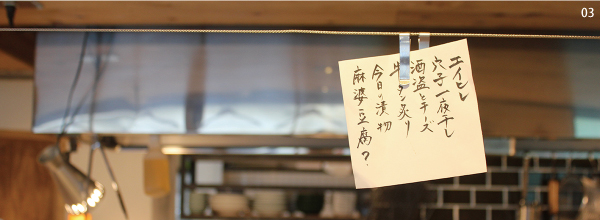 03
エイヒレ
穴子一夜干し
酒盗とチーズ
牛タン炙り
今日の漬物
麻婆豆腐?